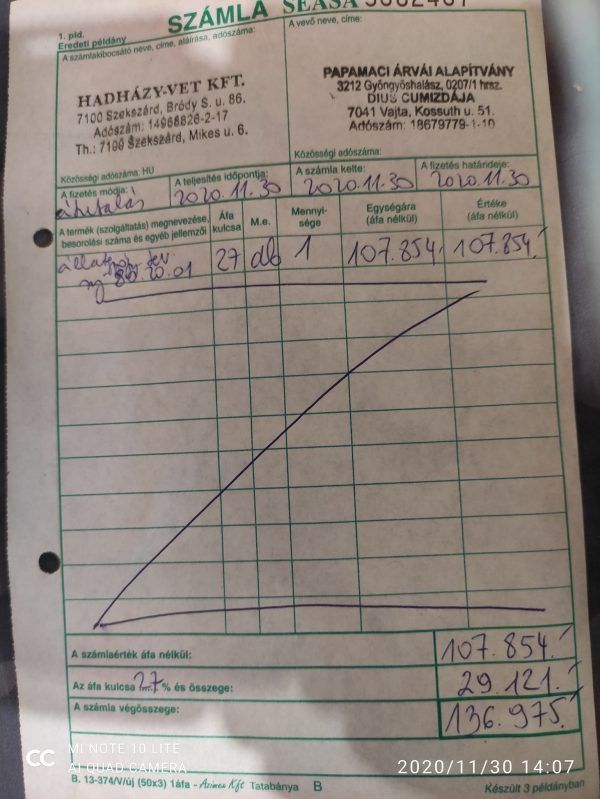 1. pld.
Eredeti példány
SZÁMLA
A számlakibocsátó neve, címe, aláírása, adószáma:
A vevő neve, címe:
HADHÁZY-VET KFT.
7100 Szekszárd, Bródy S. u. 86.
Adószám: 14968826-2-17
Th.: 7100 Szekszárd, Mikes u. 6.
PAPAMACI ÁRVÁI ALAPÍTVÁNY
3212 Gyöngyöshalász, 0207/1 hrsz.
DIUS CUMIZDÁJA
7041 Vajta, Kossuth u. 51.
Adószám: 18679779-1-10
Közösségi adószáma: HU
Közösségi adószáma:
A fizetés módja:
átutalás
A teljesítés időpontja:
2020.11.30
A számla kelte:
2020.11.30
A fizetés határideje:
2020.11.30
A termék (szolgáltatás) megnevezése,
besorolási száma és egyéb jellemzői
Áfa
kulcsa
M.e.
Mennyi-
sége
Egységára
(áfa nélkül)
Értéke
(áfa nélkül)
27 db 1 107.854.- 107.854.-
A számlaérték áfa nélkül: 107.854.-
Az áfa kulcsa 27 % és összege: 29.121.-
A számla végösszege: 136.975.-
MI NOTE 10 LITE
AI QUAD CAMERA
2020/11/30 14:07
B. 13-374/V/új (50x3) 1áfa - Azimex Kft Tatabánya B
Készült 3 példányban